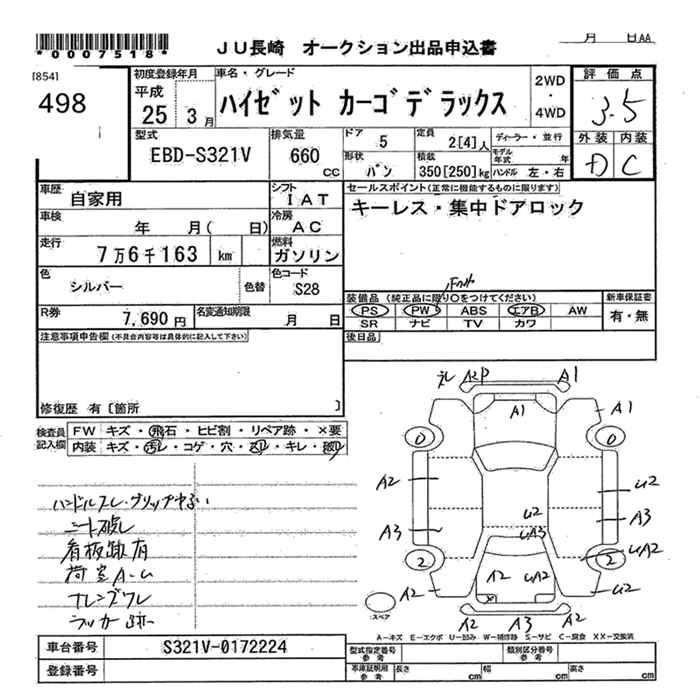 *0007518*
JU長崎 オークション出品申込書
月 日AA
[854]
498
初度登録年月
平成
25 3月
車名・グレード
ハイゼット カーゴデラックス
2WD
・
4WD
評価点
3.5
外装 内装
D C
型式
EBD-S321V
排気量
660 CC
ドア 5
形状 バン
定員 2[4]人
積載 350[250]kg
ディーラー・並行
モデル年式 年
ハンドル 左・右
車歴
自家用
シフト
IAT
車検
年 月( 日)
冷房
AC
走行
7万6千163 km
燃料
ガソリン
色
シルバー
色替
色コード
S28
R券
7,690円
名変通知期限
月 日
セールスポイント(正常に機能するものに限ります)
キーレス・集中ドアロック
装備品(純正品に限り○をつけてください)
PS PW ABS エアB AW
SR ナビ TV カワ
新車保証書
有・無
後日品
注意事項申告欄(不具合内容等は具体的に記入して下さい)
修復歴 有[箇所 ]
検査員記入欄
FW キズ・飛石・ヒビ割・リペア跡・×要
内装 キズ・汚レ・コゲ・穴・スレ・キレ・破レ
ハンドルスレ・グリップ
シート破レ
看板跡有
荷室A・U
A2P A1
A1
A1
0 0
A2 U2
U2
A3 A3
UA3
2 2
UA2
A2 UA2
A2 U2
A2 A3 A2
スペア
A-キズ E-エクボ U-凹み W-補修跡 S-サビ C-腐食 XX-交換済
車台番号 S321V-0172224
登録番号
型式指定番号 参考
類別区分番号 参考
車庫証明用 参考 長さ 幅 高さ
cm cm cm